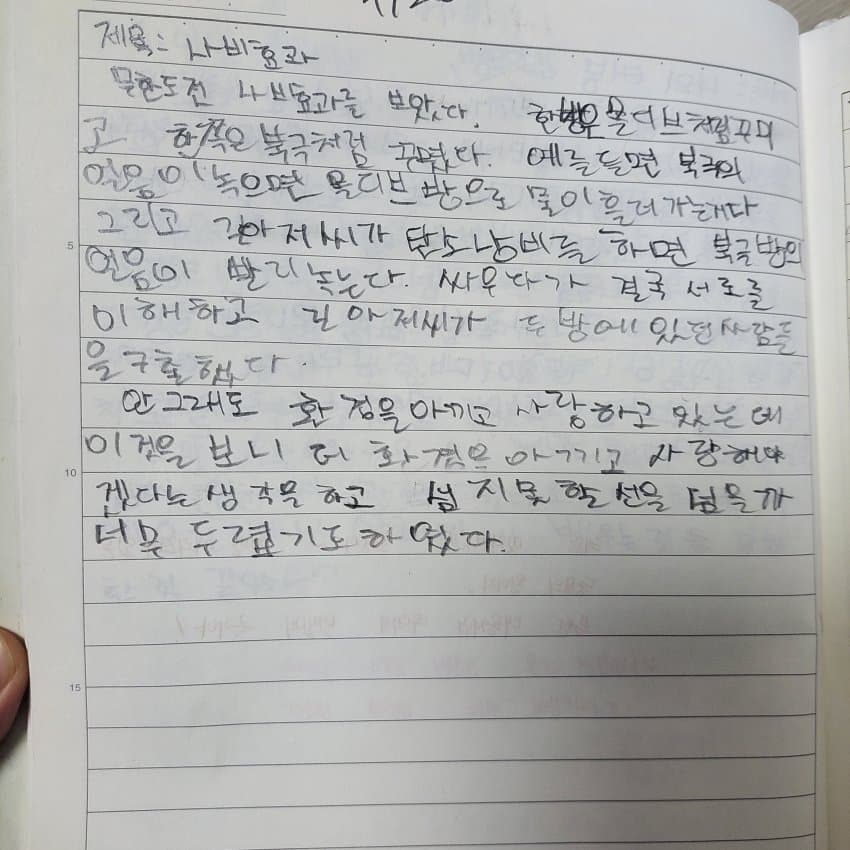 제목: 나비효과
무한도전 나비효과를 보았다. 한쪽은 몰디브처럼꾸미
고 한쪽은 북극처럼 꾸몄다. 예를들면 북극의
얼음이녹으면 몰디브방으로 물이흘러가는거다
그리고 길아저씨가 탄소낭비를 하면 북극방의
얼음이 빨리녹는다. 싸우다가 결국 서로를
이해하고 길아저씨가 두방에 있던사람들
을구출했다.
안그래도 환경을아끼고 사랑하고 있는데
이것을 보니 더 환경을 아끼고 사랑해야
겠다는생각을하고 넘지못할선을 넘을까
너무 두렵기도하였다.
5
10
15